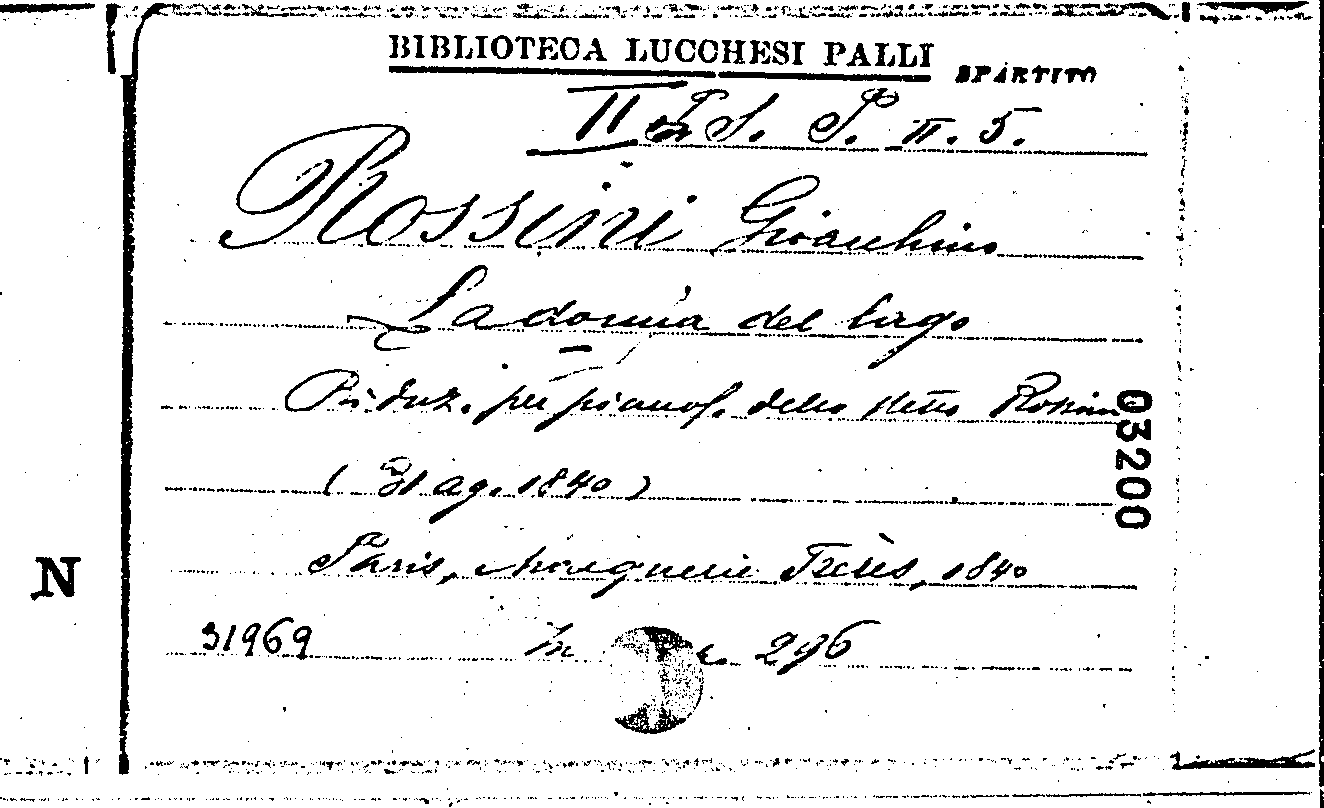 BIBLIOTECA LUCCHESI PALLI
SPARTITO
II S. P. II. 5.
Rossini Gioacchino
La donna del lago
Riduz. per pianof. dello stesso Rossini
(31 ag. 1840)
Paris, Marguerie Frères, 1840
03200
N
31969 In 296